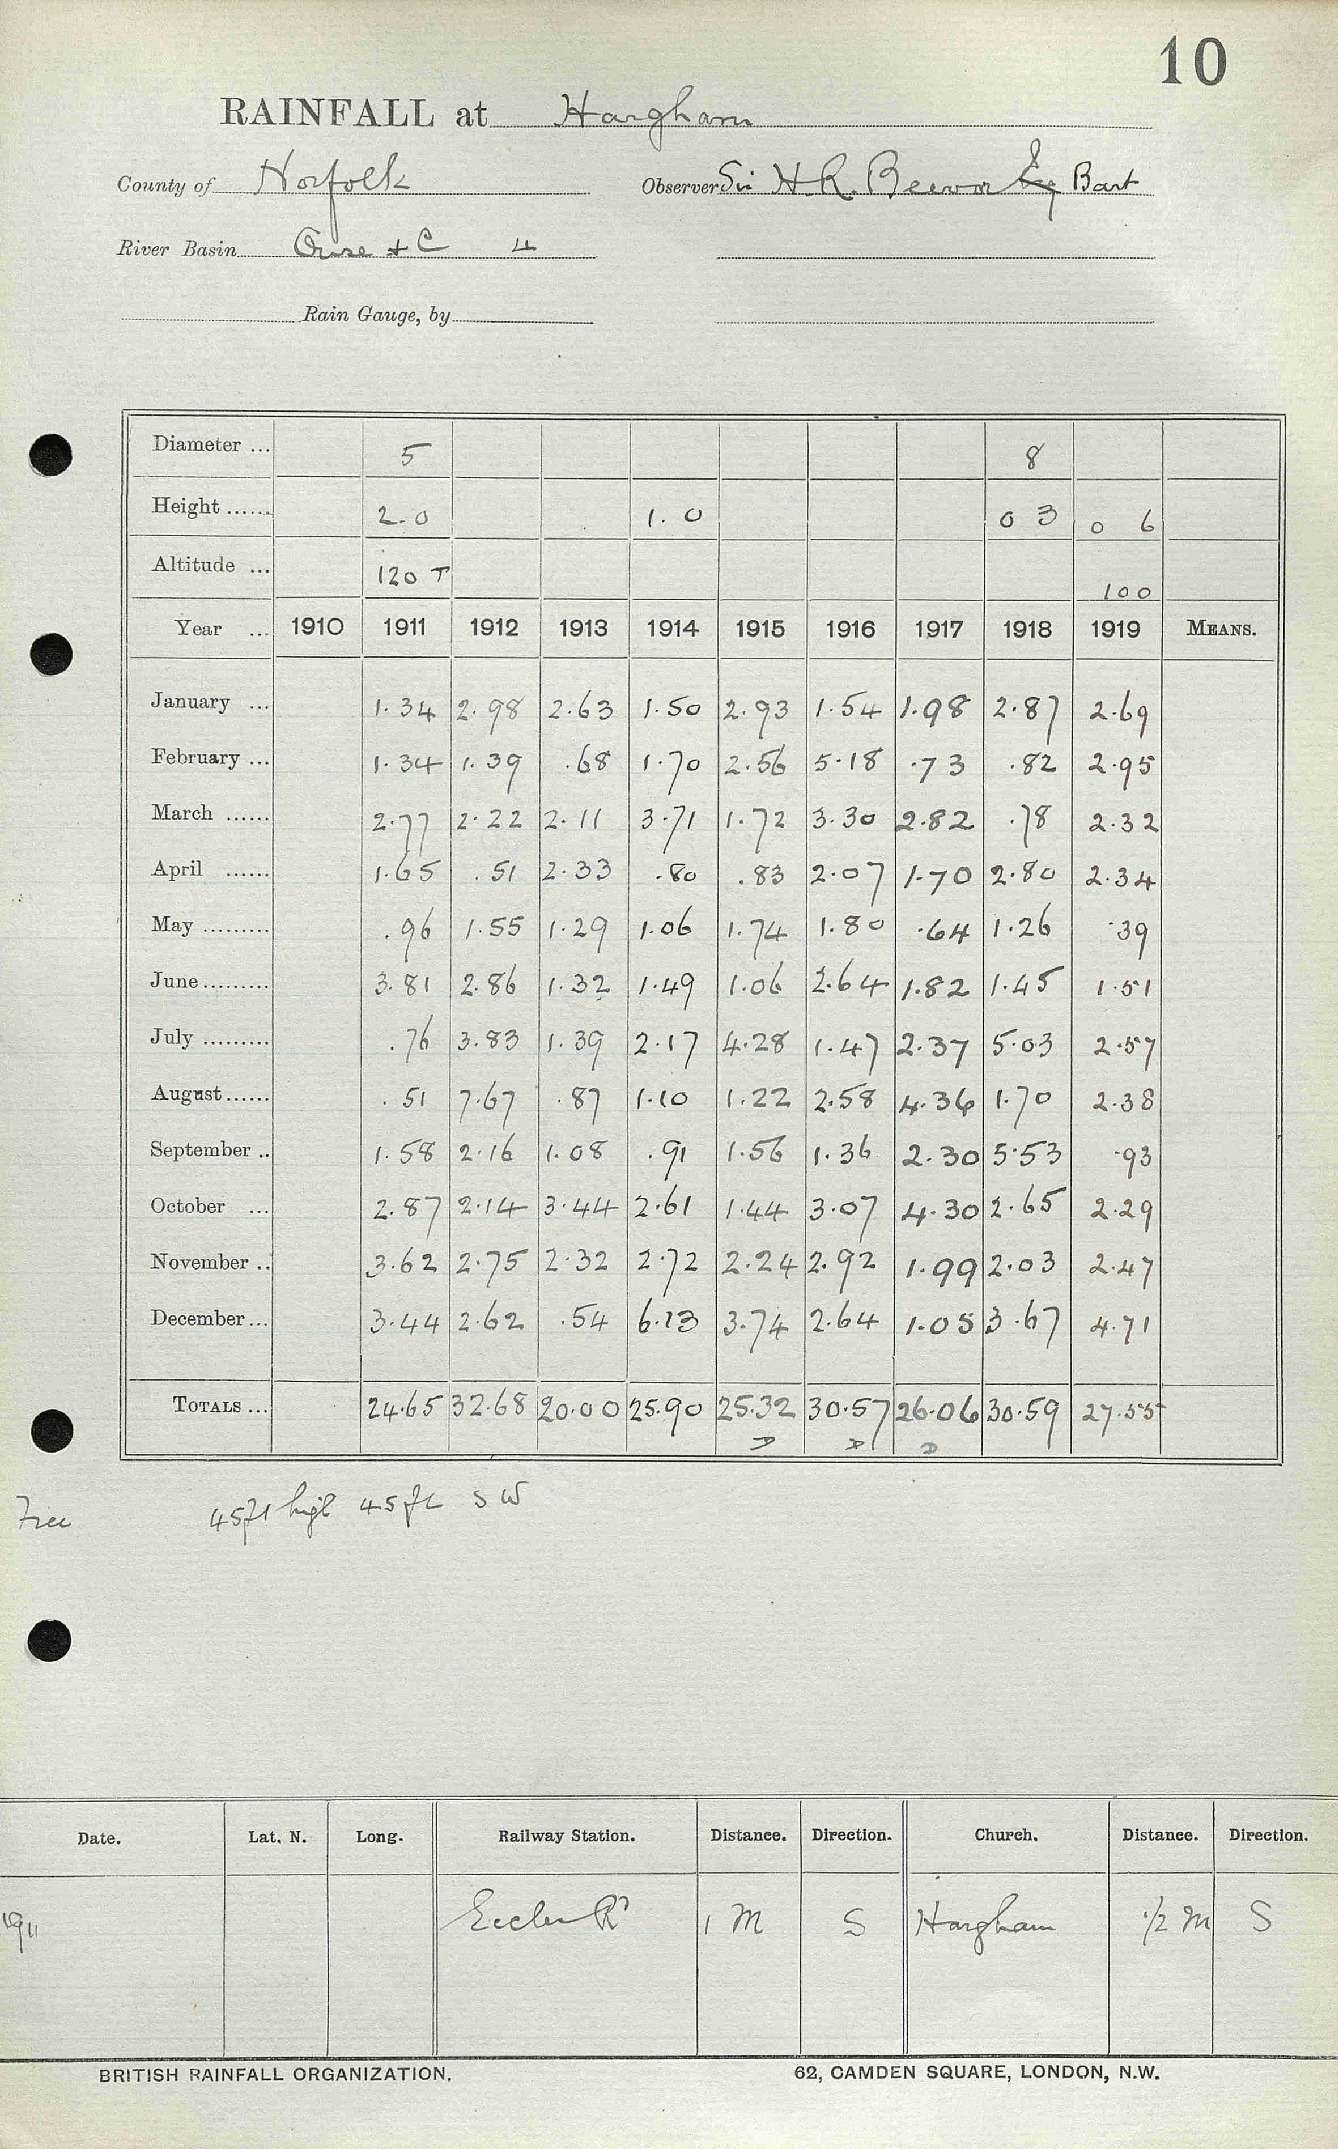 10
RAINFALL at Hargham
County of Norfolk Observer Sir H. R. Beevor Esq Bart
River Basin Ouse + C 4
Rain Gauge, by
Diameter ... 5 8
Height ...... 2.0 1.0 0 3 0 6
Altitude ... 120 T 100
Year ... 1910 1911 1912 1913 1914 1915 1916 1917 1918 1919 MEANS.
January ... 1.34 2.98 2.63 1.50 2.93 1.54 1.98 2.87 2.69
February ... 1.34 1.39 .68 1.70 2.56 5.18 .73 .82 2.95
March ...... 2.77 2.22 2.11 3.71 1.72 3.30 2.82 .78 2.32
April ...... 1.65 .51 2.33 .80 .83 2.07 1.70 2.80 2.34
May ......... .96 1.55 1.29 1.06 1.74 1.80 .64 1.26 .39
June ......... 3.81 2.86 1.32 1.49 1.06 2.64 1.82 1.45 1.51
July ......... .76 3.83 1.39 2.17 4.28 1.47 2.37 5.03 2.57
August ...... .51 7.67 .87 1.10 1.22 2.58 4.36 1.70 2.38
September .. 1.58 2.16 1.08 .91 1.56 1.36 2.30 5.53 .93
October ... 2.87 2.14 3.44 2.61 1.44 3.07 4.30 2.65 2.29
November .. 3.62 2.75 2.32 2.72 2.24 2.92 1.99 2.03 2.47
December ... 3.44 2.62 .54 6.13 3.74 2.64 1.05 3.67 4.71
TOTALS ... 24.65 32.68 20.00 25.90 25.32 30.57 26.06 30.59 27.55
D D D
Tree 45ft high 45 ft S W
Date. Lat. N. Long. Railway Station. Distance. Direction. Church. Distance. Direction.
1911 Eccles Rd 1 M S Hargham 1/2 M S
BRITISH RAINFALL ORGANIZATION. 62, CAMDEN SQUARE, LONDON, N.W.